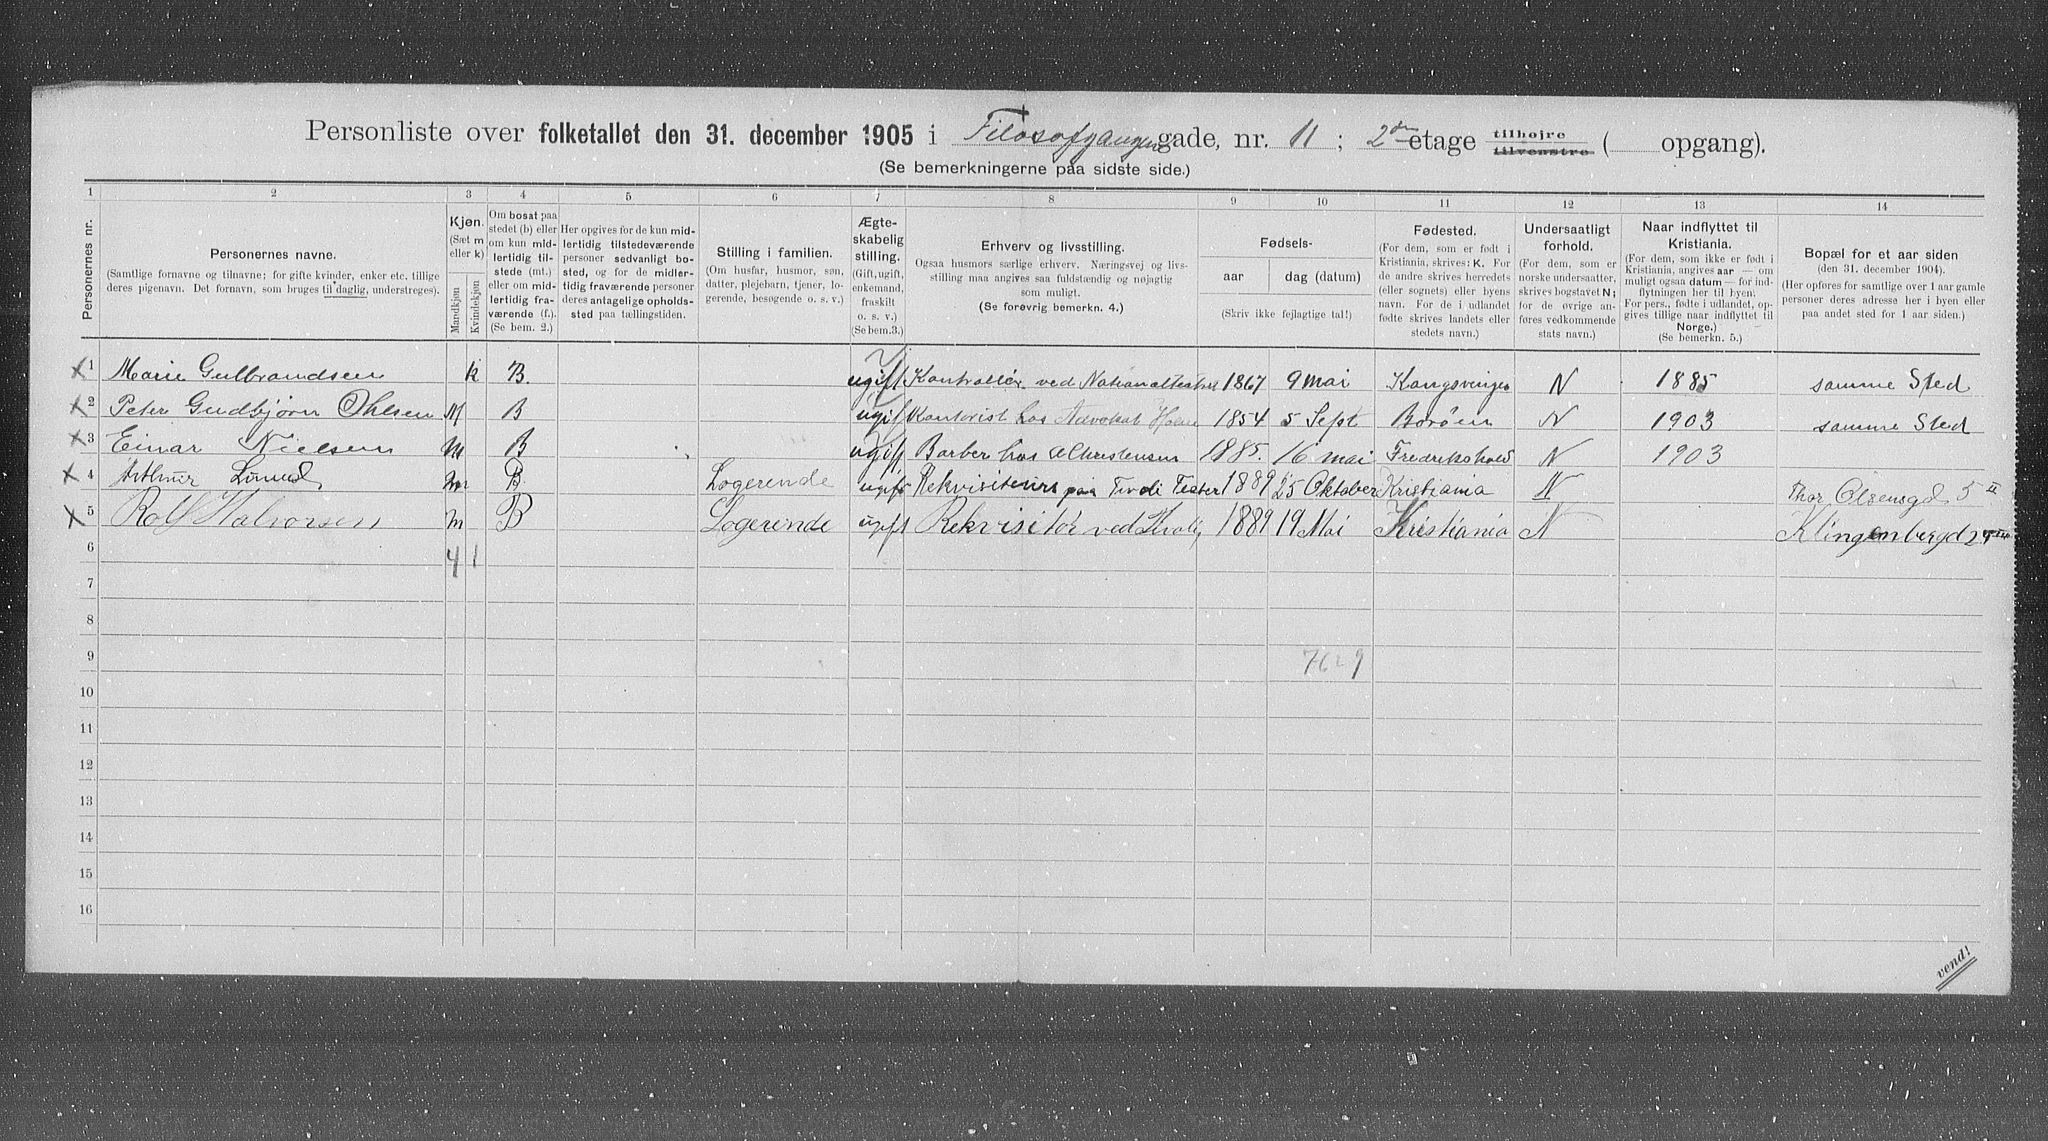 Personliste over folketallet den 31. december 1905 i Filosofgangen gade, nr. 11 ; 2den etage tilhøjre tilvenstre ( opgang).
(Se bemerkningerne paa sidste side.)
1 2 3 4 5 6 7 8 9 10 11 12 13 14
Personernes nr.
Personernes navne.
(Samtlige fornavne og tilnavne; for gifte kvinder, enker etc. tillige deres pigenavn. Det fornavn, som bruges til daglig, understreges).
Kjøn.
(Sæt m eller k)
Mandkjøn
Kvindekjøn
Om bosat paa stedet (b) eller om kun midlertidig tilstede (mt.) eller om midlertidig fraværende (f.). (Se bem. 2.)
Her opgives for de kun midlertidig tilstedeværende personer sedvanligt bosted, og for de midlertidig fraværende personer deres antagelige opholdssted paa tællingstiden.
Stilling i familien.
(Om husfar, husmor, søn, datter, plejebarn, tjener, logerende, besøgende o. s. v.)
Ægteskabelig stilling.
(Gift, ugift, enkemand, fraskilt o. s. v.)
(Se bem. 3.)
Erhverv og livsstilling.
Ogsaa husmors særlige erhverv. Næringsvej og livsstilling maa angives saa fuldstændig og nøjagtig som muligt.
(Se forøvrig bemerkn. 4.)
Fødsels-
aar dag (datum)
(Skriv ikke fejlagtige tal!)
Fødested.
(For dem, som er født i Kristiania, skrives: K. For de andre skrives herredets (eller sognets) eller byens navn. For de i udlandet fødte skrives landets eller stedets navn.)
Undersaatligt forhold.
(For dem, som er norske undersaatter, skrives bogstavet N; for de øvrige anføres vedkommende stats navn.)
Naar indflyttet til Kristiania.
(For dem, som ikke er født i Kristiania, angives aar — om muligt ogsaa datum — for indflytningen her til byen. For pers., fødte i udlandet, opgives tillige naar indflyttet til Norge.)
(Se bemerkn. 5.)
Bopæl for et aar siden
(den 31. december 1904).
(Her opføres for samtlige over 1 aar gamle personer deres adresse her i byen eller paa andet sted for 1 aar siden.)
1 Marie Gulbrandsen k B. ugift Kontrollør ved Nationalteatret 1867 9 Mai Kongsvinger N 1885 samme Sted
2 Peter Gudbjørn Ohlsen M B ugift Kontorist hos Advokat 1854 5 Sept Borøen N 1903 samme Sted
3 Einar Nielsen m B ugift Barber hos Christensen 1885. 16 mai Fredrikshald N 1903
4 Arthur Lunud m B Logerende ugift Rekvisiteur paa Tivoli Teater 1889 25 Oktober Kristiania N Thor Olsensgd 5 II
5 Rolf Halvorsen m B Logerende ugift Rekvisitør ved Tivoli, 1889 19 Mai Kristiania N Klingenbergd
6 4 1
7
8
9 7629
10
11
12
13
14
15
16
vend!